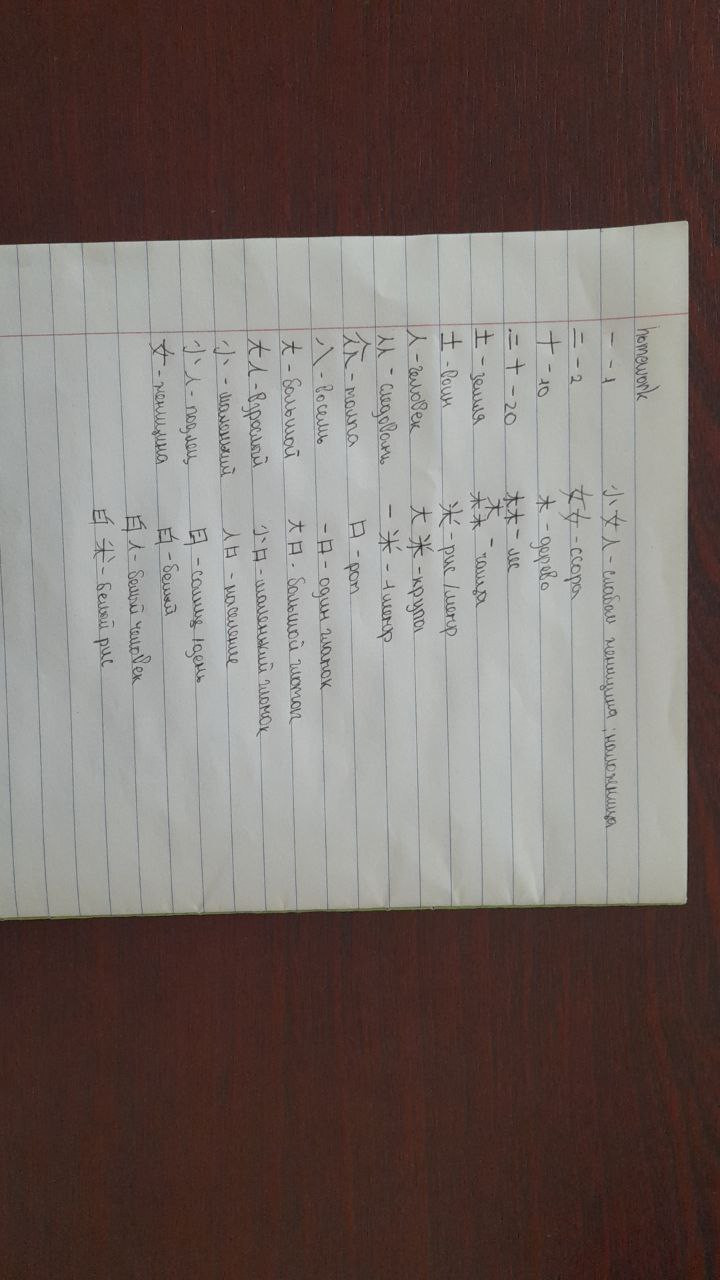 homework
一 - 1
二 - 2
十 - 10
二十 - 20
土 - земля
士 - воин
人 - человек
从 - следовать
众 - толпа
八 - восемь
大 - большой
大人 - взрослый
小 - маленький
小人 - подлец
女 - женщина
小女人 - слабая женщина; наложница
女女 - ссора
木 - дерево
林 - лес
森 - чаща
米 - рис / метр
大米 - крупа
一米 - 1 метр
口 - рот
一口 - один глоток
大口 - большой глоток
小口 - маленький глоток
人口 - население
日 - солнце / день
白 - белый
白人 - белый человек
白米 - белый рис